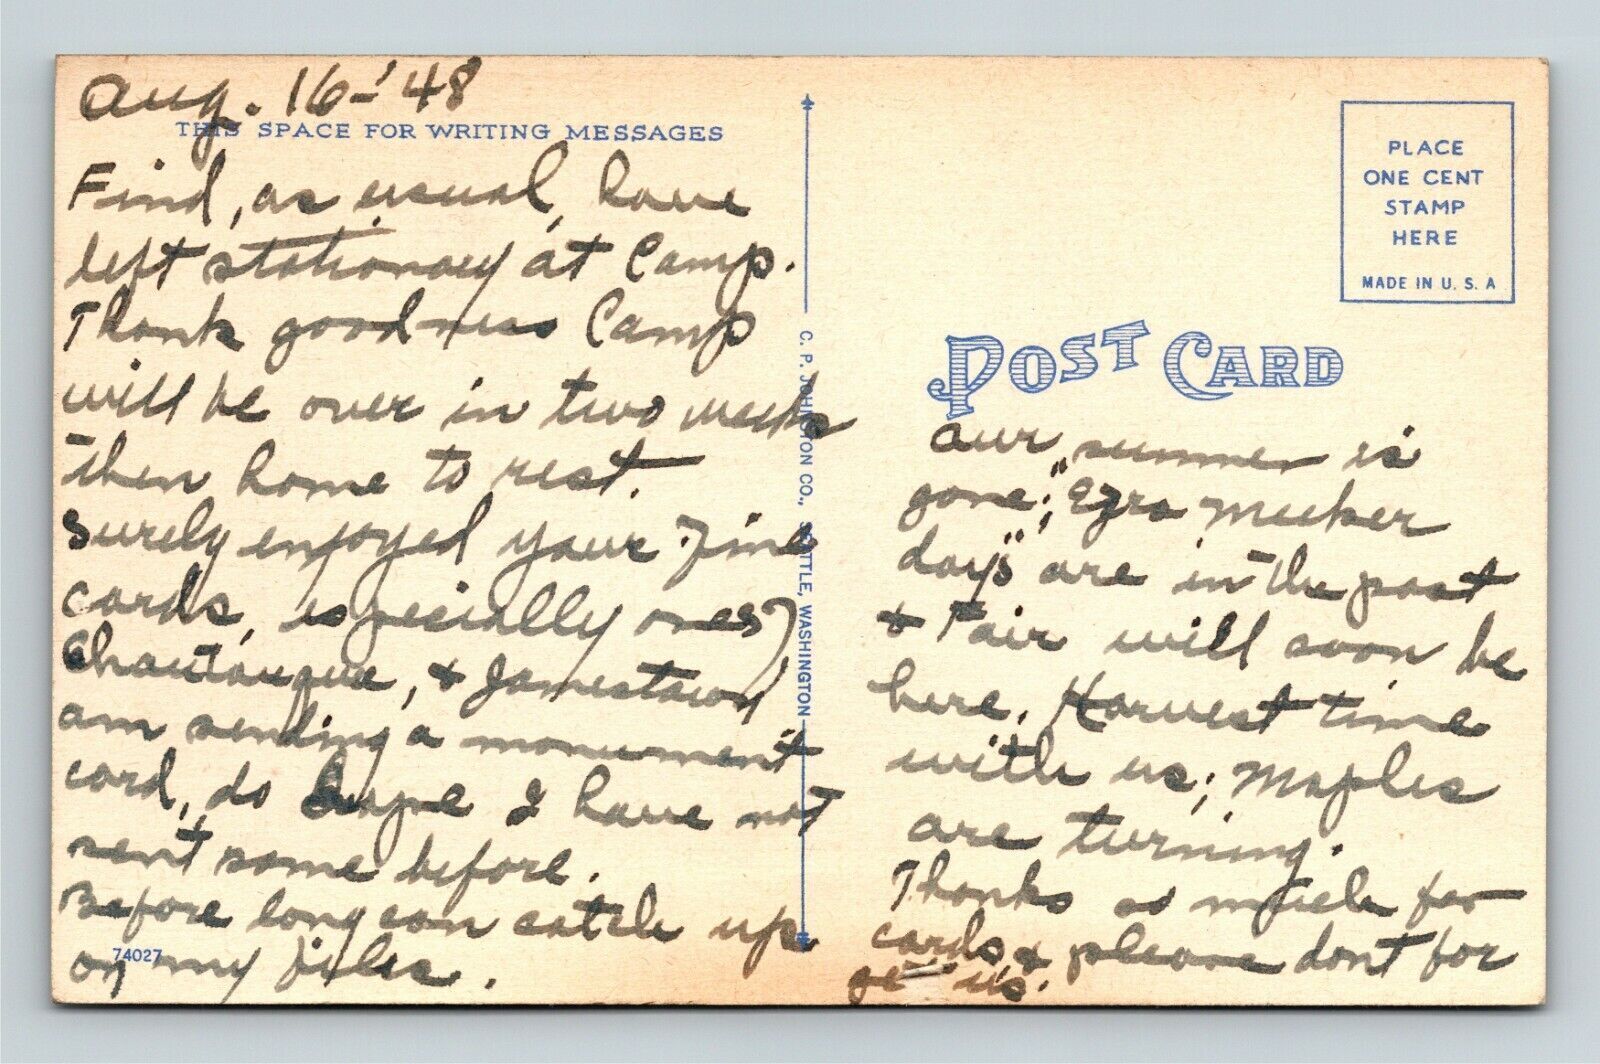 Aug. 16-'48
THIS SPACE FOR WRITING MESSAGES
Find, as usual, have
left stationary at Camp.
Thank goodness Camp
will be over in two weeks
then home to rest.
Surely enjoyed your fine
cards, especially ones?
Chautauqua, & Jamestown
am sending a monument
card, do hope I have not
sent same before.
Before long can catch up
on my files.
74027
C. P. JOHNSTON CO., SEATTLE, WASHINGTON
PLACE
ONE CENT
STAMP
HERE
MADE IN U. S. A
POST CARD
Our summer is
gone; "Ezra Meeker
days" are in the past
& Fair will soon be
here. Harvest time
with us; Maples
are turning.
Thanks so much for
cards & please dont for
get us.